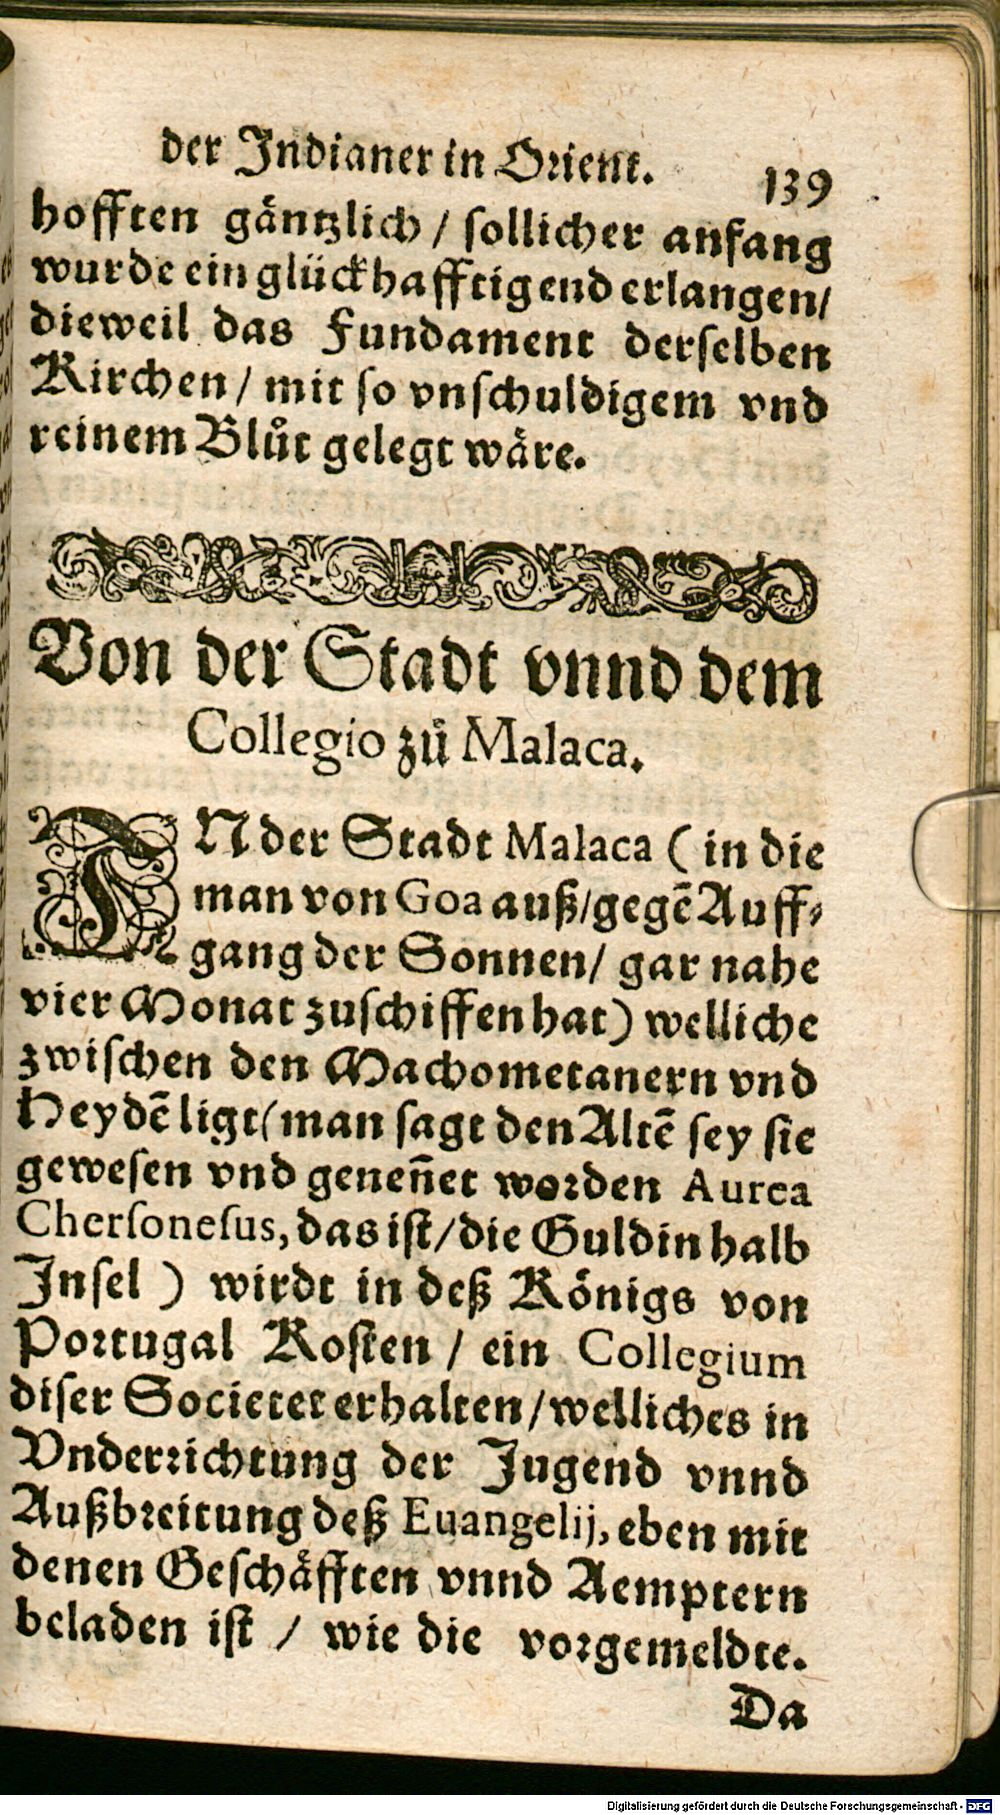 der Indianer in Orient. 139
hofften gäntzlich / sollicher anfang
wurde ein glückhafftig end erlangen/
dieweil das Fundament derselben
Kirchen / mit so vnschuldigem vnd
reinem Blůt gelegt wäre.
Von der Stadt vnnd dem
Collegio zů Malaca.
IN der Stadt Malaca ( in die
man von Goa auß/gegē Auff-
gang der Sonnen/ gar nahe
vier Monat zuschiffen hat) welliche
zwischen den Machometanern vnd
Heydē ligt/(man sagt den Altē sey sie
gewesen vnd geneñet worden Aurea
Chersonesus, das ist/die Guldin halb
Insel ) wirdt in deß Königs von
Portugal Kosten / ein Collegium
diser Societet erhalten/welliches in
Vnderrichtung der Jugend vnnd
Außbreitung deß Euangelij, eben mit
denen Geschäfften vnnd Aemptern
beladen ist / wie die vorgemeldte.
Da
Digitalisierung gefördert durch die Deutsche Forschungsgemeinschaft - DFG